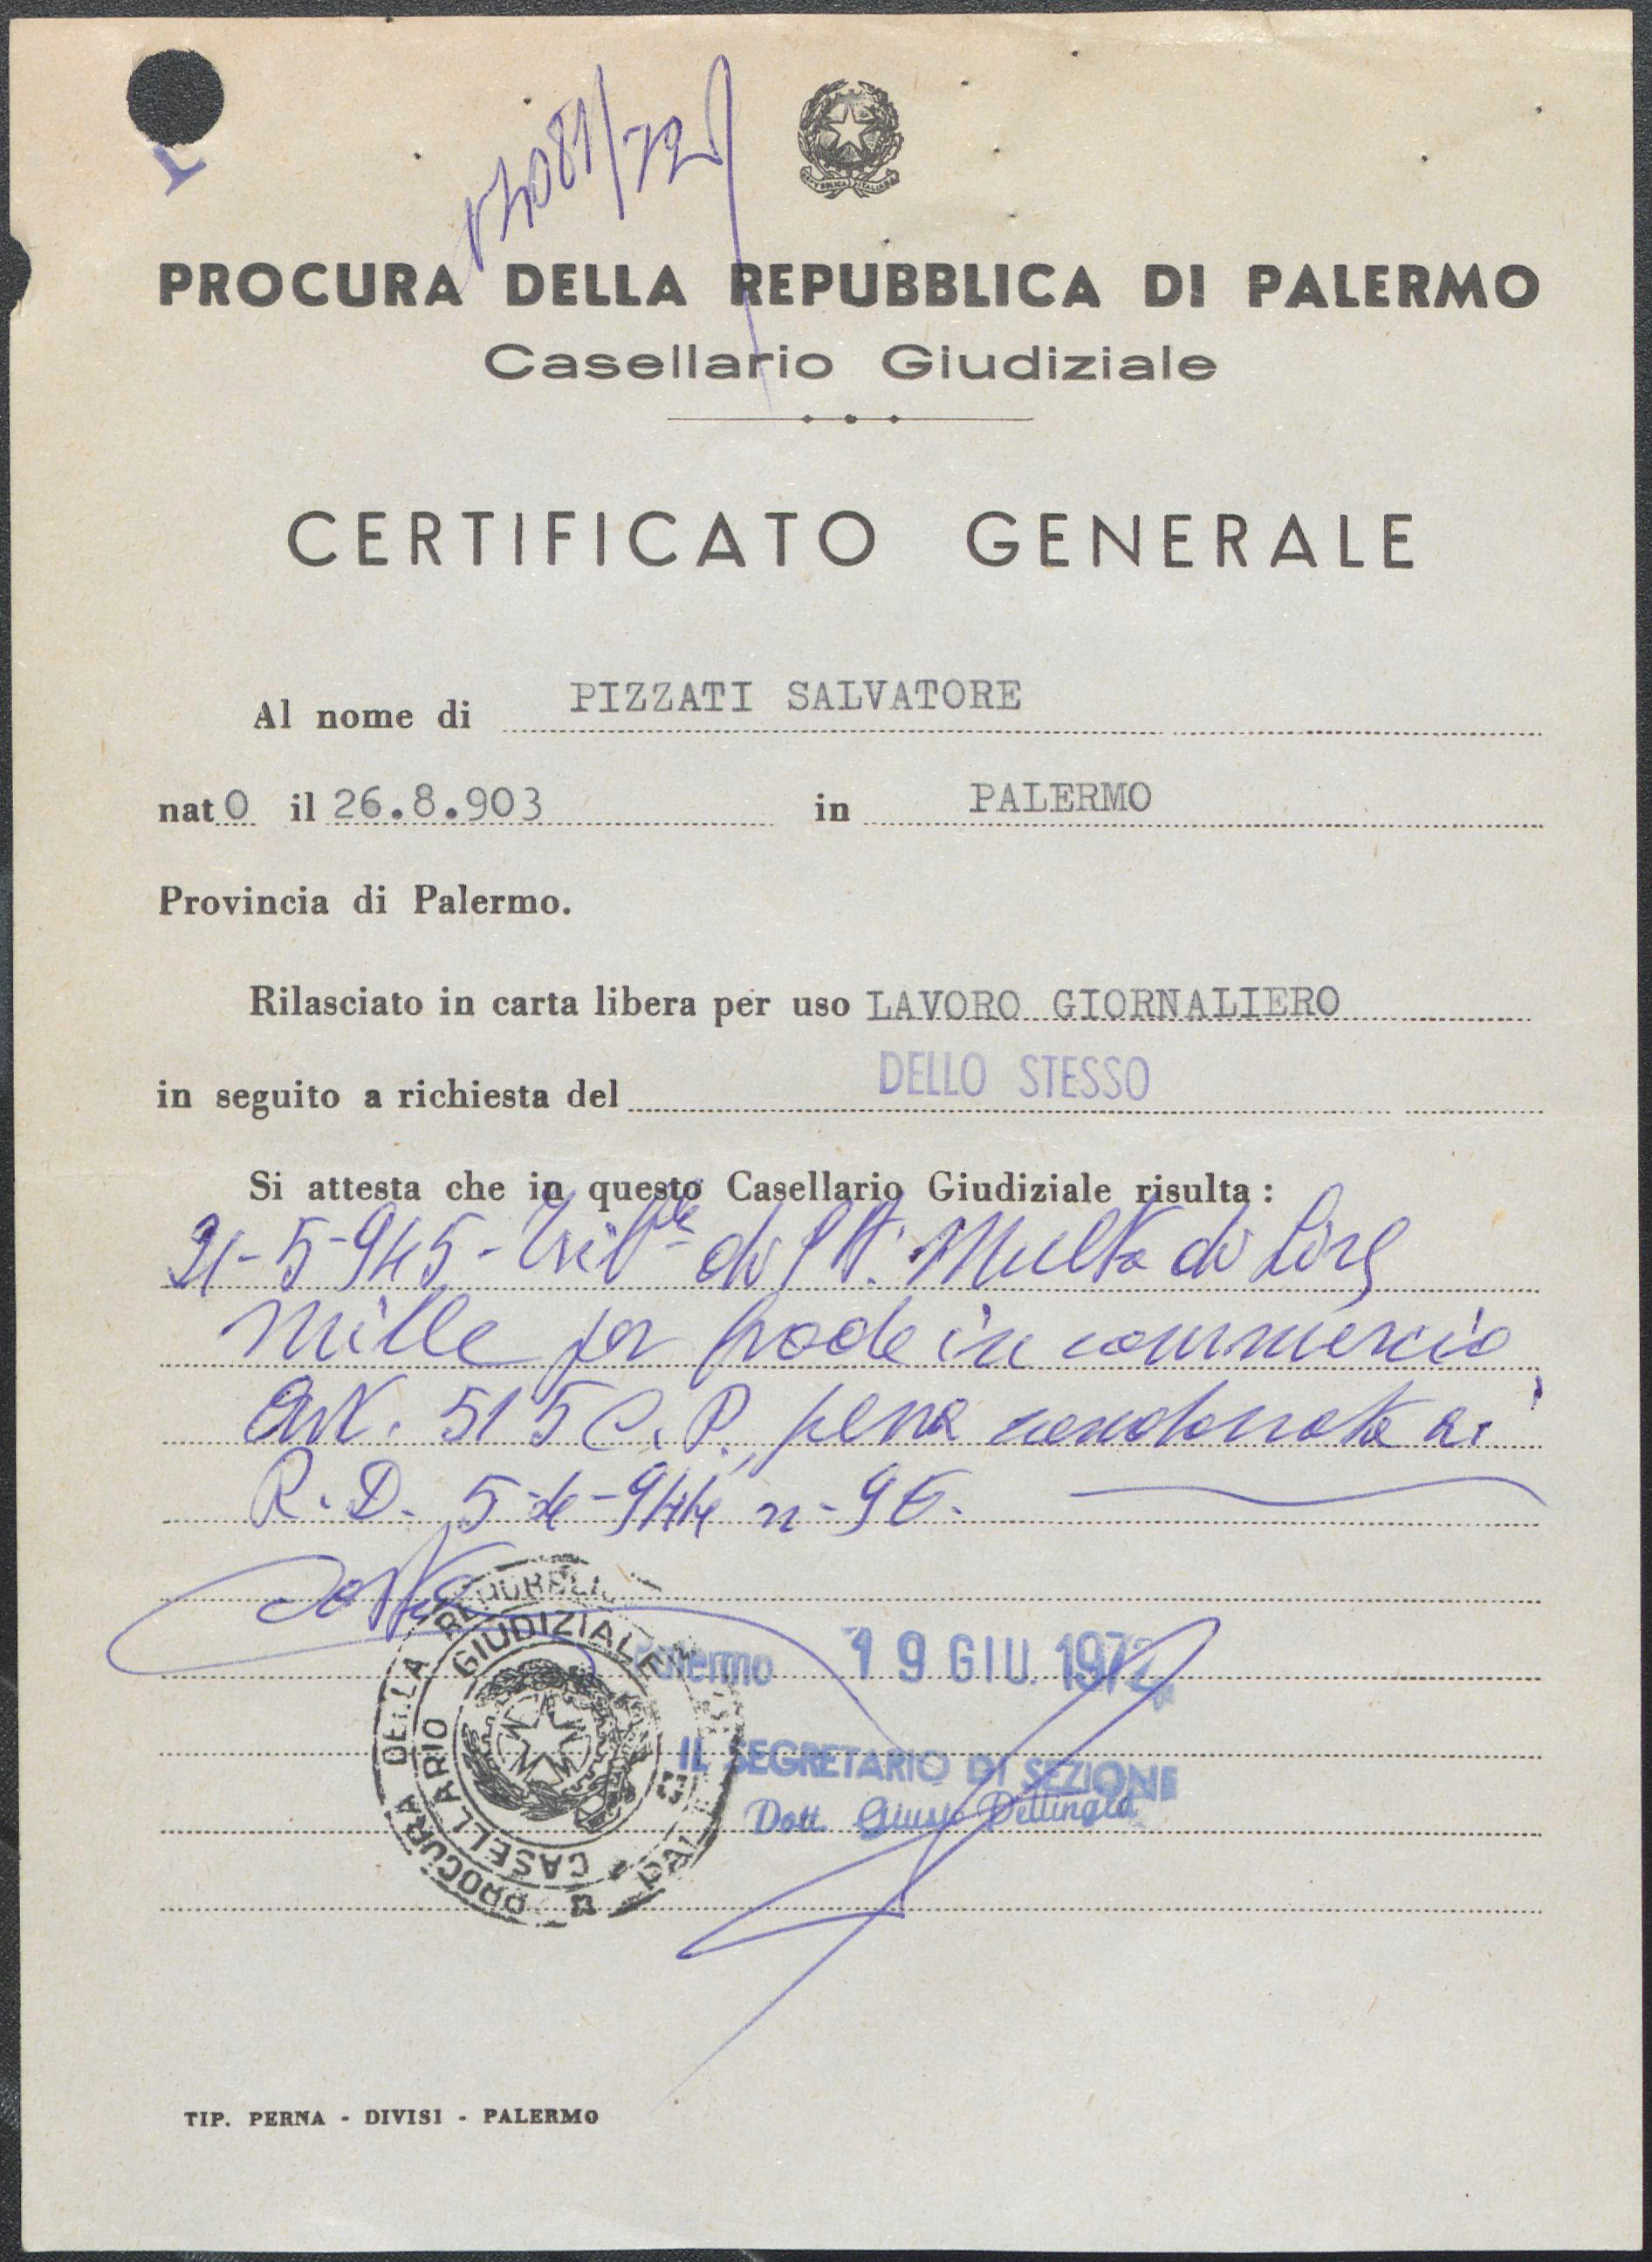 REPUBBLICA ITALIANA
PROCURA DELLA REPUBBLICA DI PALERMO
Casellario Giudiziale
CERTIFICATO GENERALE
Al nome di PIZZATI SALVATORE
nato il 26.8.903 in PALERMO
Provincia di Palermo.
Rilasciato in carta libera per uso LAVORO GIORNALIERO
in seguito a richiesta del DELLO STESSO
Si attesta che in questo Casellario Giudiziale risulta:
21-5-945- Trib.le di Multa di Lire
mille per frode in commercio
art. 515 C.P. pena condonata ai
R.D. 5-4-944 n-96.
Palermo 19 GIU. 1972
IL SEGRETARIO DI SEZIONE
Dott.
PROCURA DELLA REPUBBLICA
CASELLARIO GIUDIZIALE
TIP. PERNA - DIVISI - PALERMO